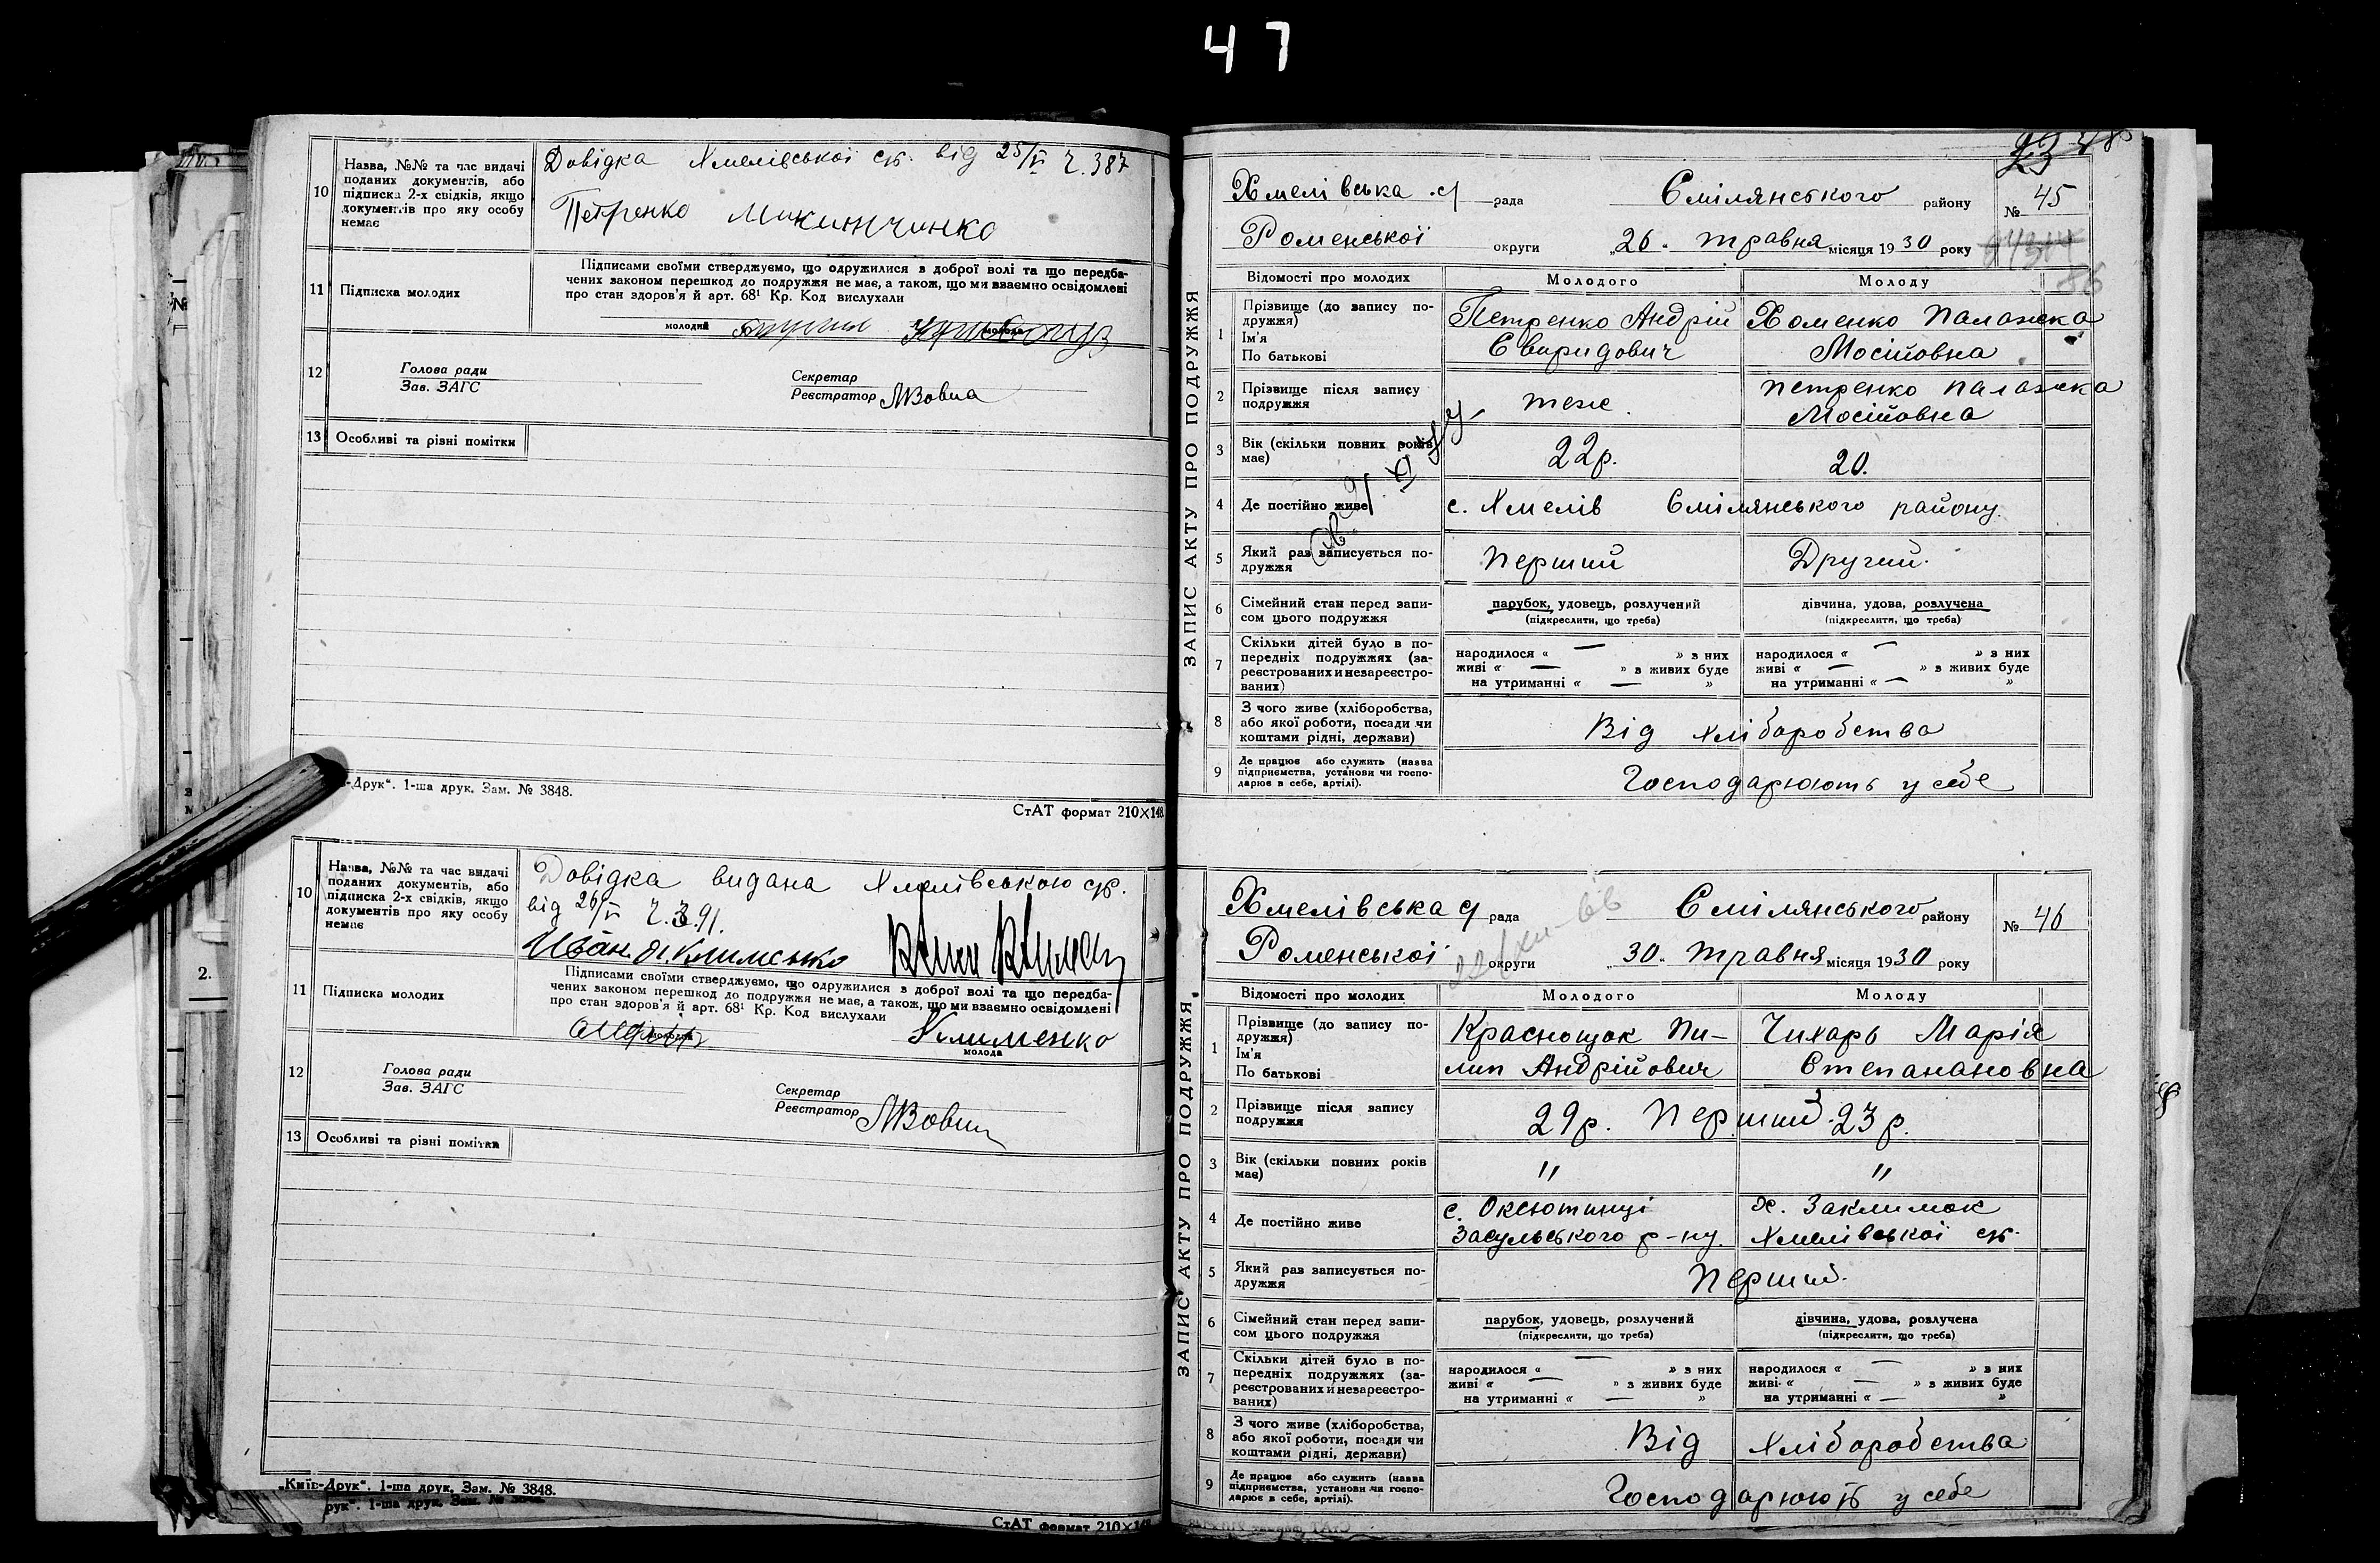 47
10
Назва, №№ та час видачі
поданих документів, або
підписка 2-х свідків, якщо
документів про яку особу
немає
Довідка Хмелівської с/р. від 25/V Ч. 387
Петренко
11
Підписка молодих
Підписами своїми стверджуємо, що одружилися з доброї волі та що передба-
чених законом перешкод до подружжя не має, а також, що ми взаємно освідомлені
про стан здоров'я й арт. 68¹ Кр. Код вислухали
молодий
молода
12
Голова ради
Зав. ЗАГС
Секретар
Реєстратор
13
Особливі та різні помітки
-Друк“. 1-ша друк. Зам. № 3848.
СтАТ формат 210×148
10
Назва, №№ та час видачі
поданих документів, або
підписка 2-х свідків, якщо
документів про яку особу
немає
Довідка видана Хмелівською с/р.
від 26/V Ч. 391.
Клименко
11
Підписка молодих
Підписами своїми стверджуємо, що одружилися з доброї волі та що передба-
чених законом перешкод до подружжя не має, а також, що ми взаємно освідомлені
про стан здоров'я й арт. 68¹ Кр. Код вислухали
Клименко
молода
12
Голова ради
Зав. ЗАГС
Секретар
Реєстратор
13
Особливі та різні помітки
„Київ-Друк“. 1-ша друк. Зам. № 3848.
рук“. 1-ша друк. Зам. № 3848.
СтАТ формат 210×148
ЗАПИС АКТУ ПРО ПОДРУЖЖЯ
Хмелівська с/ рада Смілянського району № 45
Роменської округи „26“ травня місяця 1930 року
Відомості про молодих
Молодого
Молоду
1
Прізвище (до запису по-
дружжя)
Ім'я
По батькові
Петренко Андрій
Свиридович
Хоменко Палажка
Мосійовна
2
Прізвище після запису
подружжя
теж.
Петренко Палажка
Мосійовна
3
Вік (скільки повних років
має)
22р.
20.
4
Де постійно живе
с. Хмелів Смілянського району.
5
Який раз записується по-
дружжя
Перший
Другий.
6
Сімейний стан перед запи-
сом цього подружжя
парубок, удовець, розлучений
(підкреслити, що треба)
дівчина, удова, розлучена
(підкреслити, що треба)
7
Скільки дітей було в по-
передніх подружжях (за-
реєстрованих и незареєстро-
ваних)
народилося « — » з них
живі « — » з живих буде
на утриманні « — »
народилося « — » з них
живі « — » з живих буде
на утриманні « — »
8
З чого живе (хліборобства,
або якої роботи, посади чи
коштами рідні, держави)
Від хліборобства
9
Де працює або служить (назва
підприємства, установи чи госпо-
дарює в себе, артілі).
Господарюють у себе
ЗАПИС АКТУ ПРО ПОДРУЖЖЯ
Хмелівська с/ рада Смілянського району № 46
Роменської округи „30“ травня місяця 1930 року
Відомості про молодих
Молодого
Молоду
1
Прізвище (до запису по-
дружжя)
Ім'я
По батькові
Краснощок Пи-
лип Андрійович
Чихарь Марія
Степанановна
2
Прізвище після запису
подружжя
29р. Перший. 23р.
3
Вік (скільки повних років
має)
"
"
4
Де постійно живе
с. Оксютинці
Засульського р-ну.
х. Заклимок
Хмелівської с/р.
5
Який раз записується по-
дружжя
Перший.
6
Сімейний стан перед запи-
сом цього подружжя
парубок, удовець, розлучений
(підкреслити, що треба)
дівчина, удова, розлучена
(підкреслити, що треба)
7
Скільки дітей було в по-
передніх подружжях (за-
реєстрованих и незареєстро-
ваних)
народилося « — » з них
живі « — » з живих буде
на утриманні « — »
народилося « — » з них
живі « — » з живих буде
на утриманні « — »
8
З чого живе (хліборобства,
або якої роботи, посади чи
коштами рідні, держави)
Від хліборобства
9
Де працює або служить (назва
підприємства, установи чи госпо-
дарює в себе, артілі).
Господарюють у себе